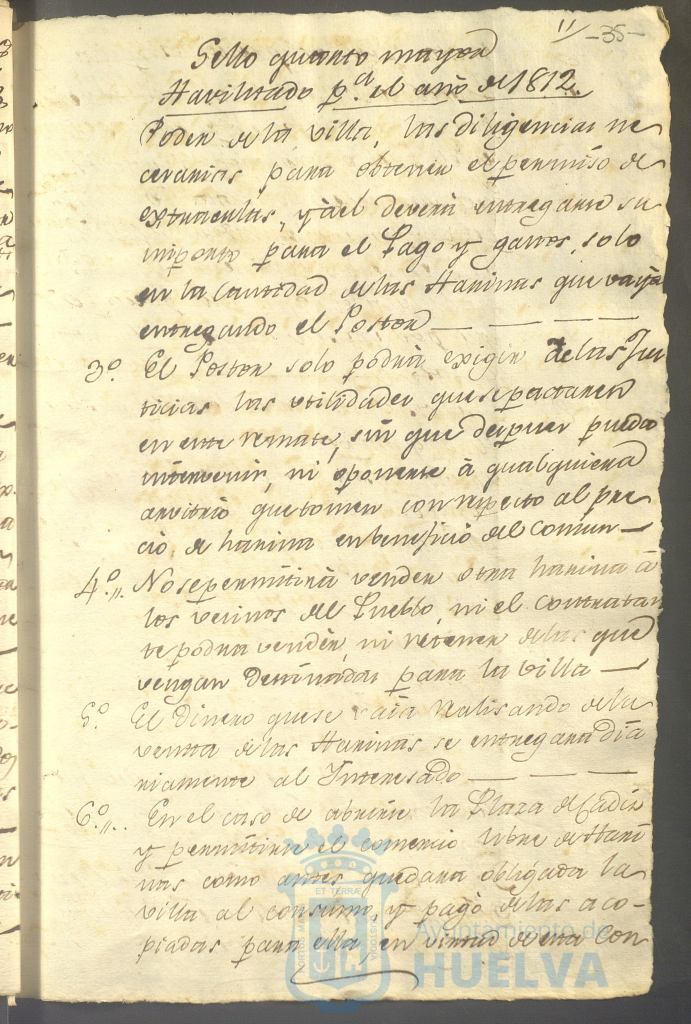 11/ -35-
Sello quarto mayor
Havilitado p.a el año de 1812.
Poder de la villa, las diligencias ne
cesarias para obtener el permiso de
extraerlas, y a el devera entregarse su
importe para el Pago y gastos, solo
en la cantidad de las Harinas que vaya
entregando el Postor — — — —
3.º El Postor solo podrá exigir de las Jus
ticias las utilidades que se pactaren
en este remate, sin que despues pueda
intervenir, ni oponerse à qualquiera
arvitrio que tomen con respecto al pre
cio de harina en beneficio del Comun —
4.º,, No se permitirà vender otra harina à
los vecinos del Pueblo, ni el contratan
te podrá vender, ni retener de las que
vengan destinadas para la villa —
5.º El Dinero que se vaia realisando de la
venta de las Harinas se entregara dia
riamente al Interesado — — —
6.º,,. En el caso de abrirse la Plaza de Cadiz
y permitirse el comercio libre de Hari
nas como antes quedara obligada la
villa al consumo, y pago de las aco-
piadas para ella, en virtud de esta con
ET TERRÆ
Ayuntamiento de
HUELVA